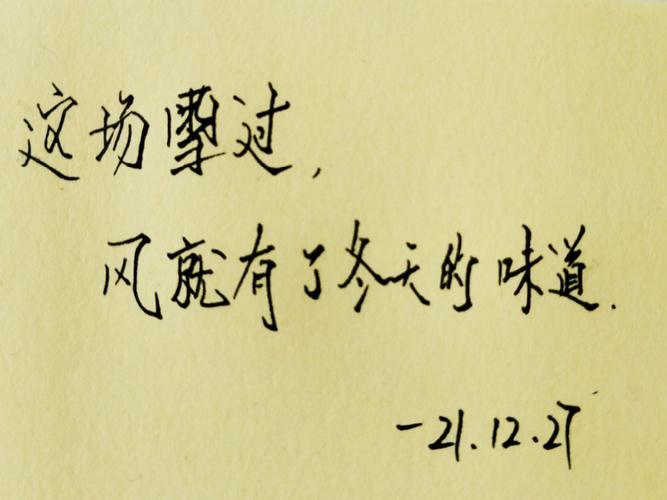 这场雪过，
风就有了冬天的味道.
-21.12.27